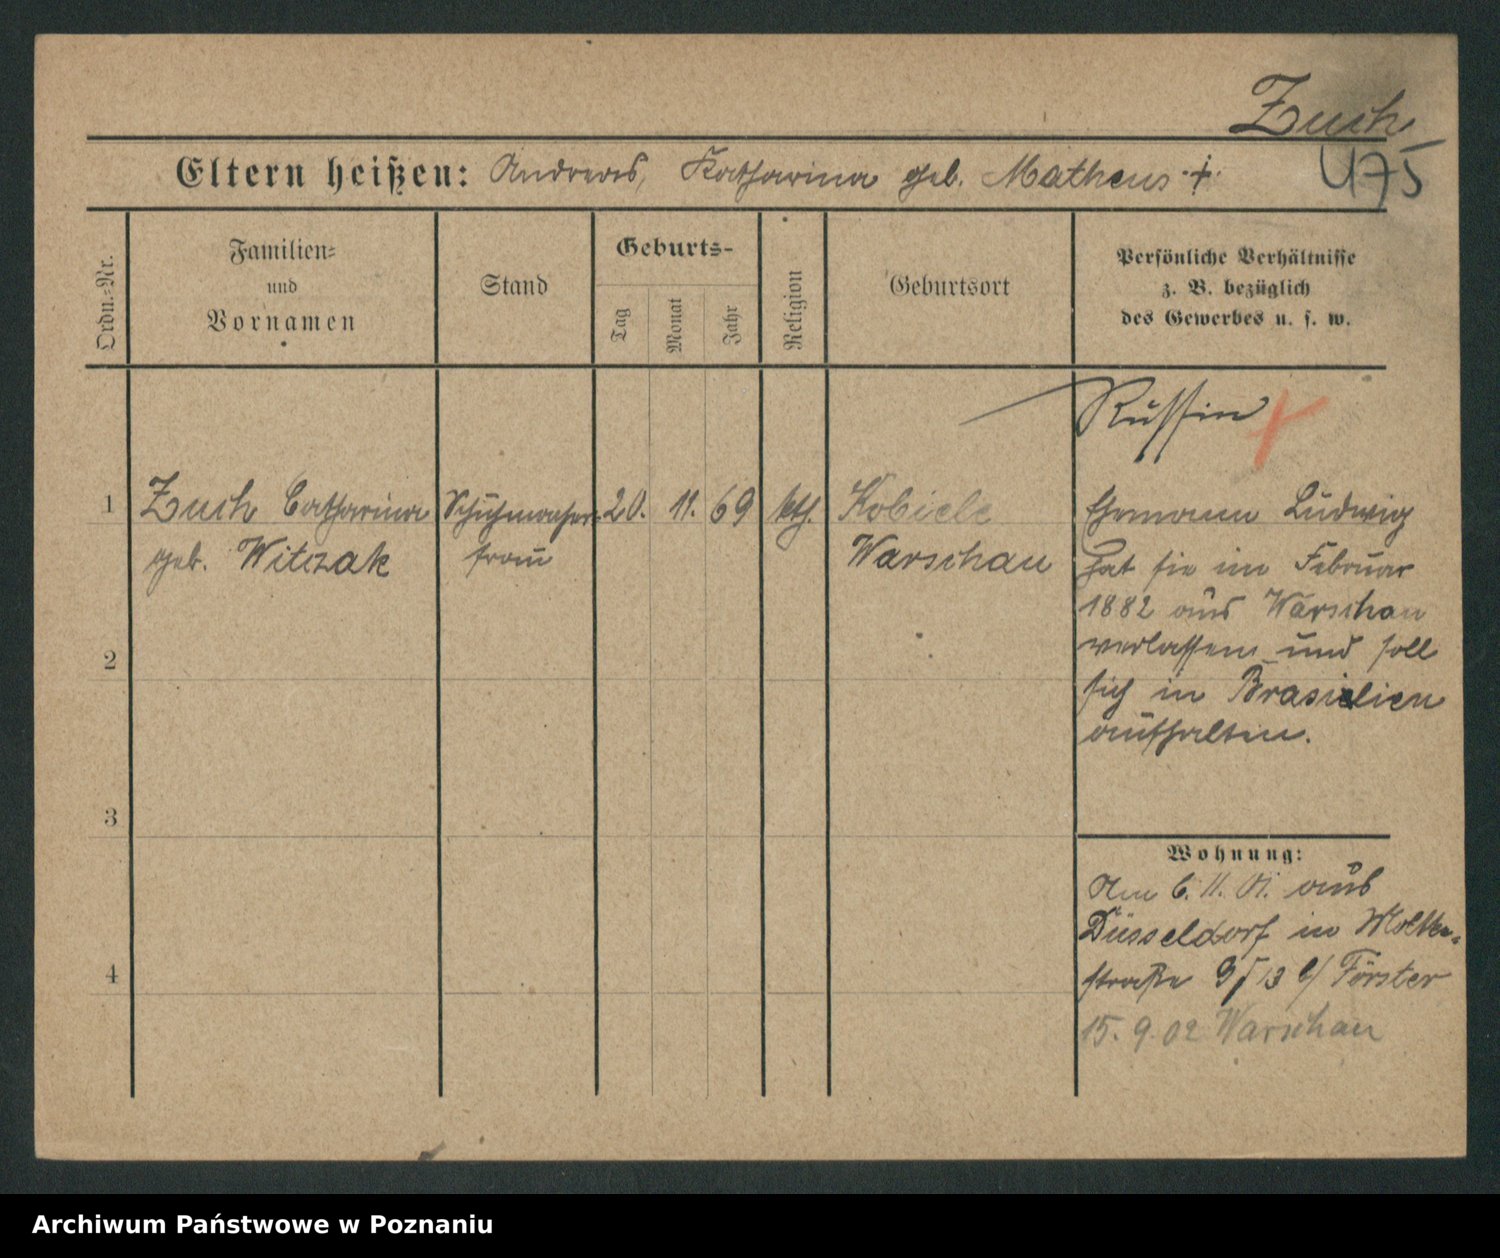 Zuch
475
Eltern heißen: Andreas, Katharina geb. Matheus +
Ordn.-Nr.
Familien-
und
Vornamen
Stand
Geburts-
Tag
Monat
Jahr
Religion
Geburtsort
Persönliche Verhältnisse
z. B. bezüglich
des Gewerbes u. s. w.
Russin
1
Zuch Catharina
geb. Witczak
Schuhmacher-
frau
20. 11. 69
kth.
Kobiele
Warschau
Ehemann Ludwig
hat sie im Februar
1882 aus Warschau
verlassen und soll
sich in Brasilien
aufhalten.
2
3
4
Wohnung:
Am 6. 11. 01. aus
Düsseldorf in Moltke-
straße 9/13 b/ Förster
15. 9. 02 Warschau
Archiwum Państwowe w Poznaniu